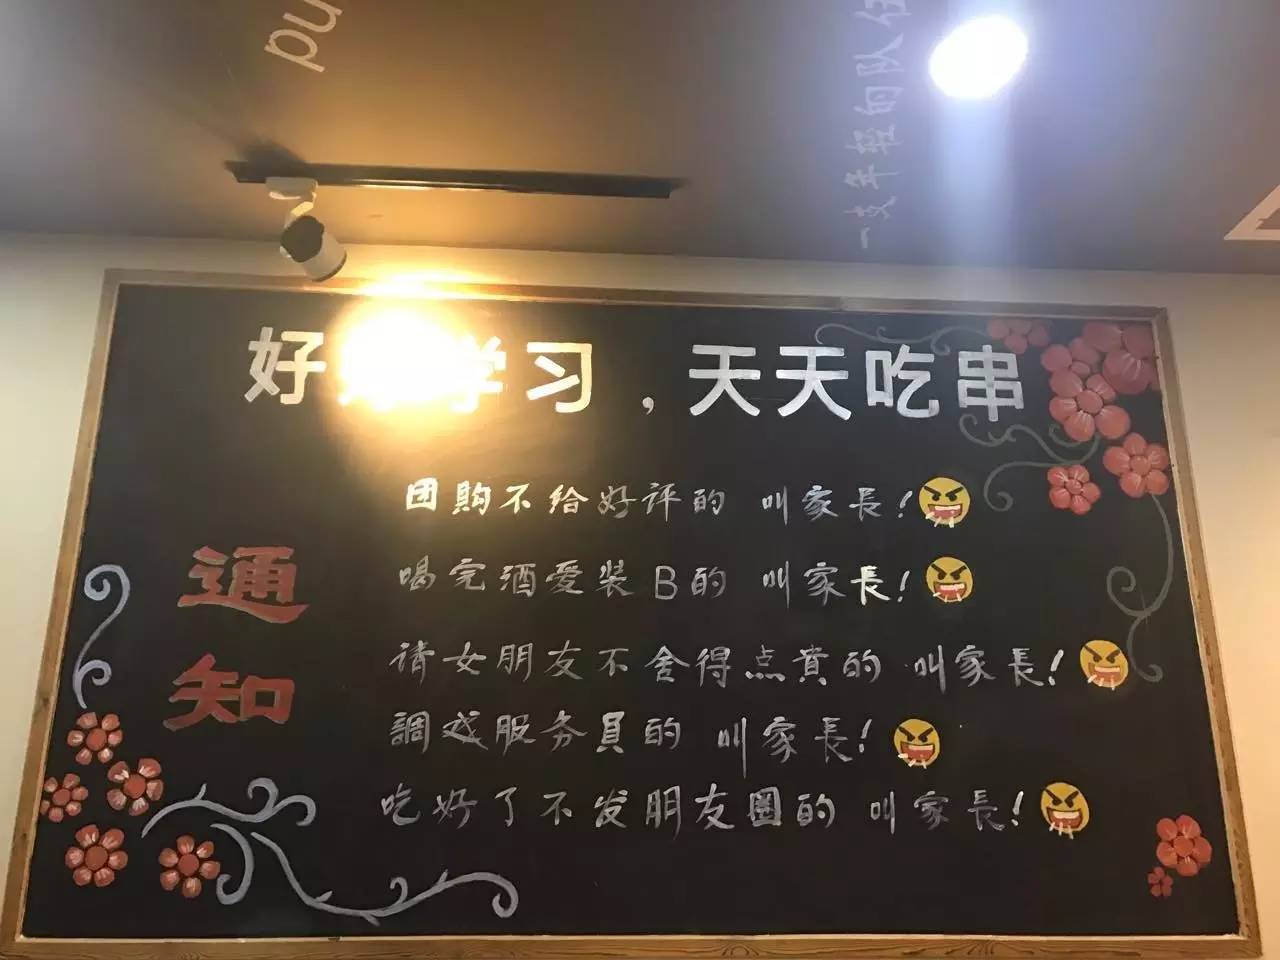 pu
一支年轻的队伍
好好学习，天天吃串
通知
团購不给好评的 叫家長！
喝完酒爱装B的 叫家長！
请女朋友不舍得点贵的 叫家長！
調戏服务員的 叫家長！
吃好了不发朋友圈的 叫家長！